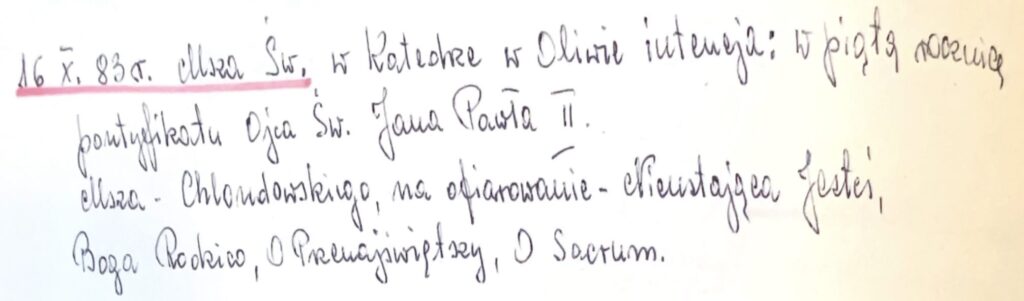 16 X. 83 r. Msza Św. w Katedrze w Oliwie intencja: w piątą rocznicę
pontyfikatu Ojca Św. Jana Pawła II.
Msza - Chlondowskiego, na ofiarowanie - Nieustająca Jesteś,
Boga Rodzico, O Przenajświętszy, O Sacrum.